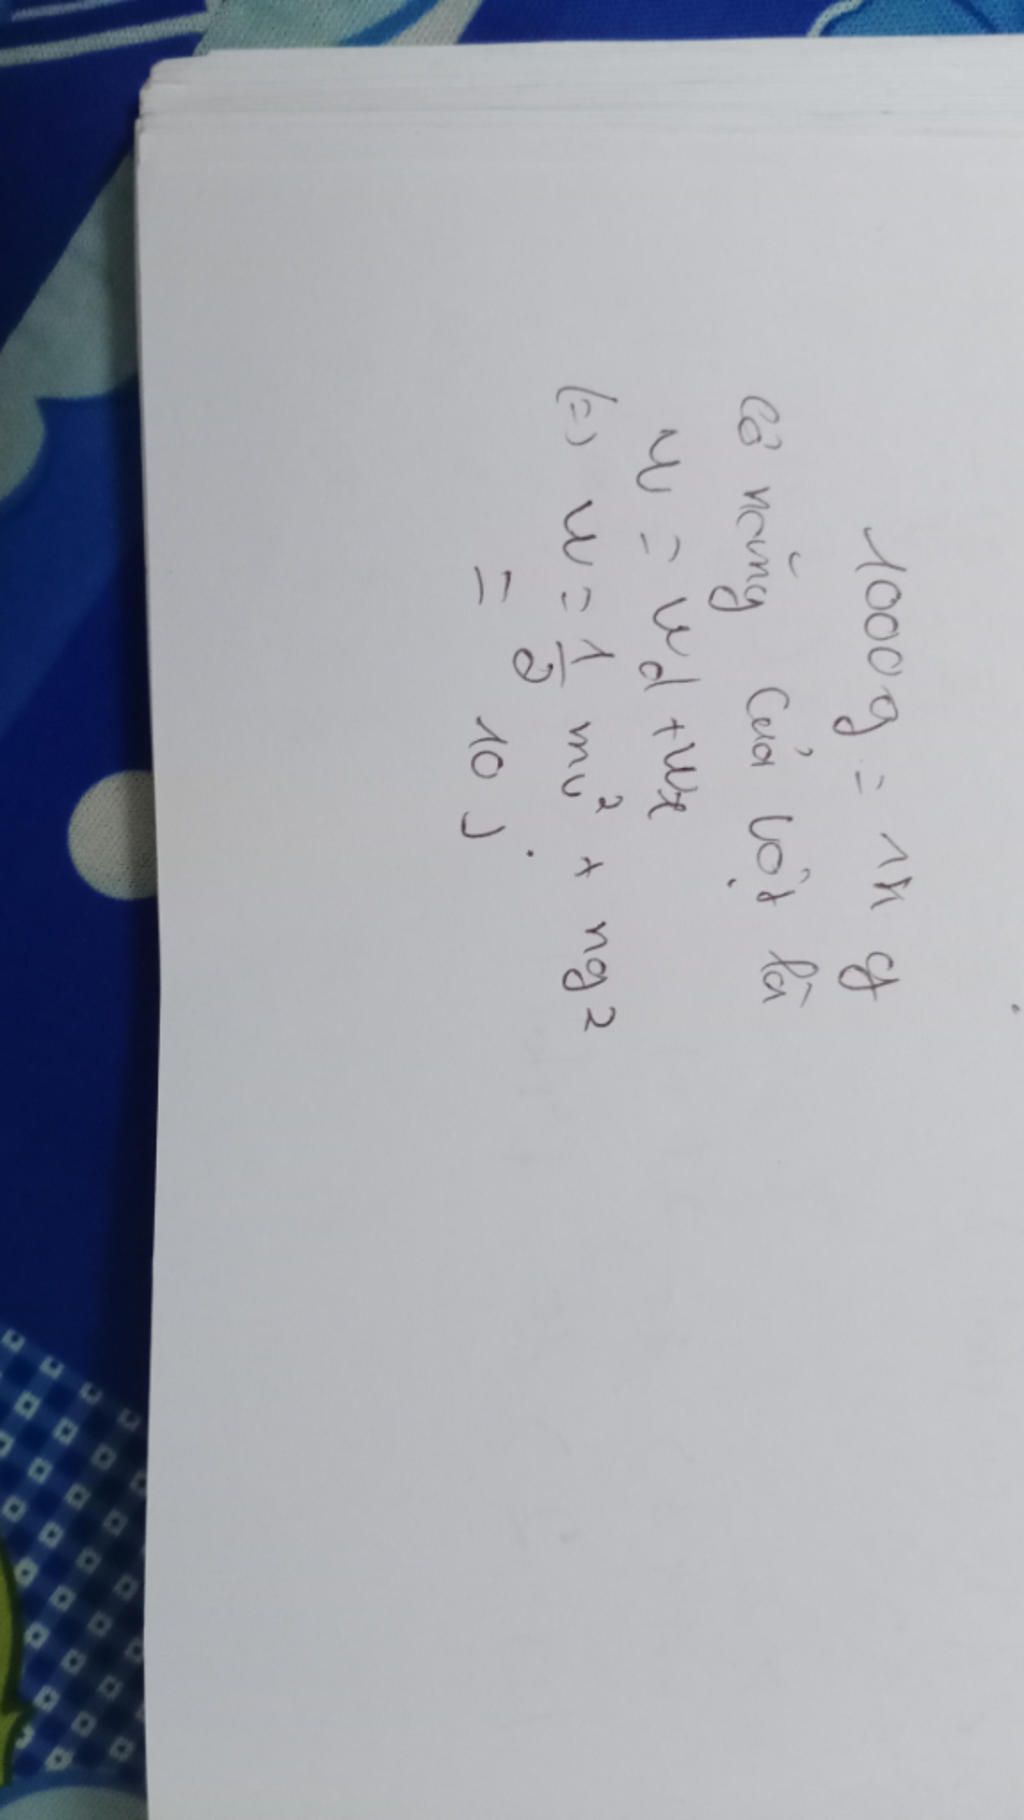 1000g = 1k g
Cơ năng của vật là
W = Wd + Wt
(=) W = 1/2 mv² + mgz
= 10 J.